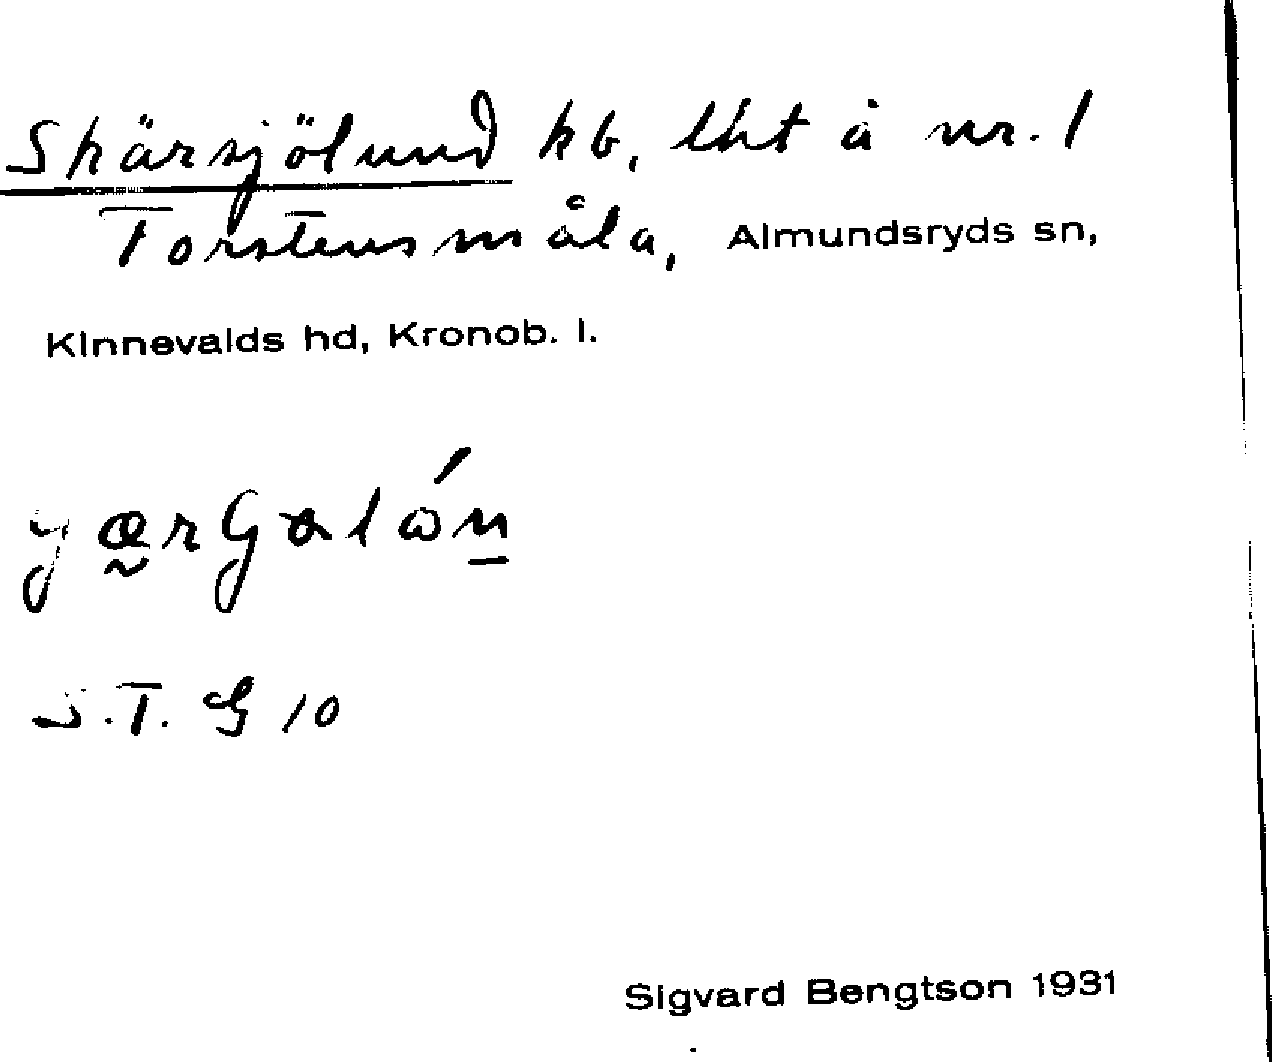 Skärsjölund kb, lht å nr. 1
Torstensmåla, Almundsryds sn,
Kinnevalds hd, Kronob. l.
S.T. G 10
Sigvard Bengtson 1931